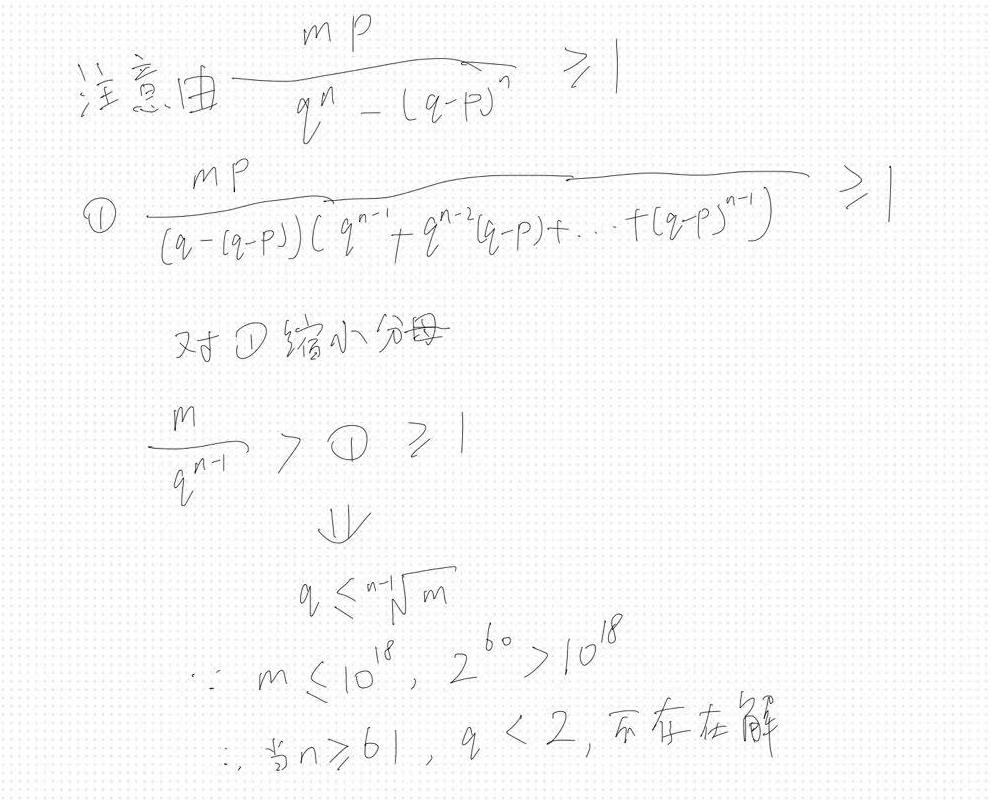 注意由 \frac{mp}{q^n - (q-p)^n} ≥ 1
① \frac{mp}{(q-(q-p))(q^{n-1} + q^{n-2}(q-p) + ... + (q-p)^{n-1})} ≥ 1
对①缩小分母
\frac{m}{q^{n-1}} > ① ≥ 1
⇓
q ≤ \sqrt[n-1]{m}
∵ m ≤ 10^{18}, 2^{60} > 10^{18}
∴ 当n ≥ 61, q < 2, 不存在解